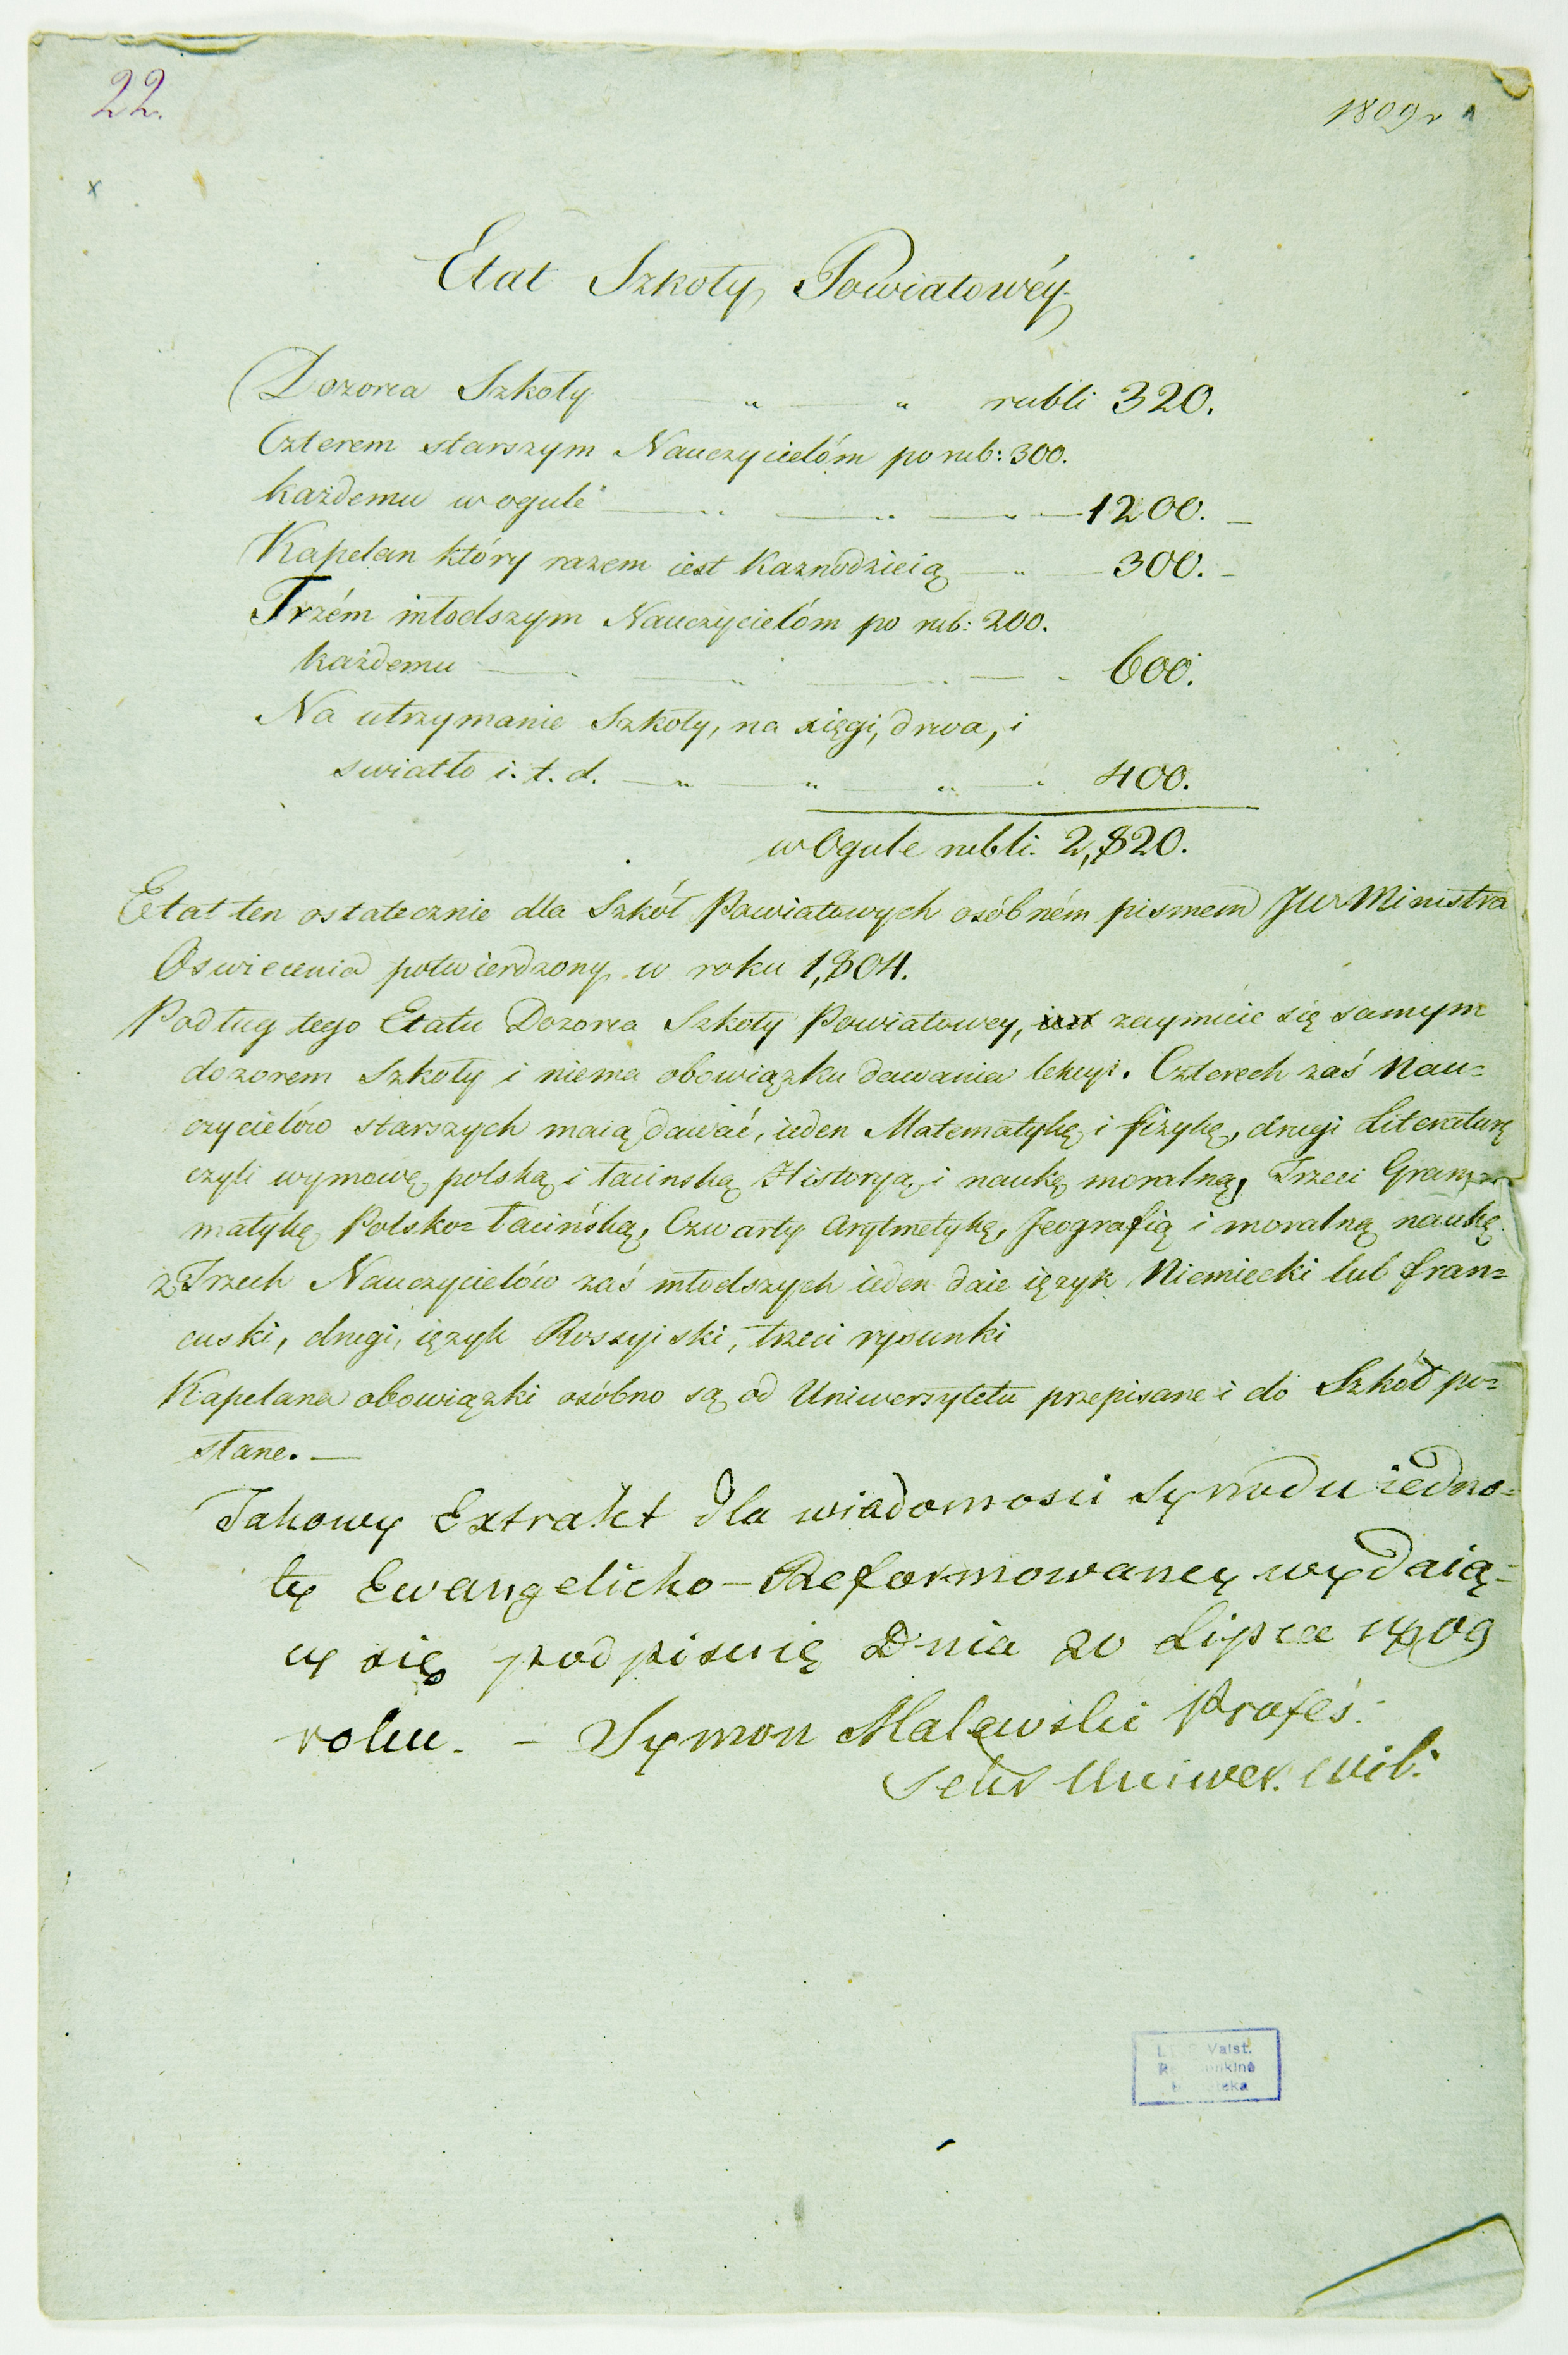 22.
1809 r
x
Etat Szkoły Powiatowéy
Dozorca Szkoły — „ — „ rubli 320.
Czterem starszym Nauczycielóm po rub: 300.
każdemu w ogule — „ — „ — „ — 1200. –
Kapelan który razem iest Kaznodzieią — „ — 300. –
Trzém młodszym Nauczycielóm po rub: 200.
każdemu — „ — „ — „ — 600.
Na utrzymanie Szkoły, na xięgi, drwa, i
swiatło i. t. d. — „ — „ — „ — „ 400.
w Ogule rubli. 2,820.
Etat ten ostatecznie dla Szkół Powiatowych osóbném pismem JW Ministra
Oswiecenia potwierdzony w roku 1,804.
Podług tego Etatu Dozorca Szkoły Powiatowey, zaymuie się samym
dozorem Szkoły i niema obowiązku dawania lekcyi. Czterech zaś Nau=
czycielów starszych maią dawać, ieden Matematykę i fizykę, drugi Literaturę
czyli wymowę polską i łacinską Historyą i naukę moralną, Trzeci Gram=
matykę Polsko= łacińską, Czwarty Arytmetykę, Jeografią i moralną naukę
z Trzech Nauczycielów zaś młodszych ieden daie ięzyk Niemiecki lub fran=
cuski, drugi, ięzyk Rossyiski, trzeci rysunki
Kapelana obowiązki osóbno są od Uniwersytetu przepisane i do Szkół po=
słane. —
Takowy Extrakt dla wiadomosci Synodu iedno=
ty Ewangelicko – Reformowaney wydaią=
cy się podpisuię Dnia 20 Lipca 1809
roku. – Symon Malewski Profes:
Sekr Uniwer. Wil:
Valst.